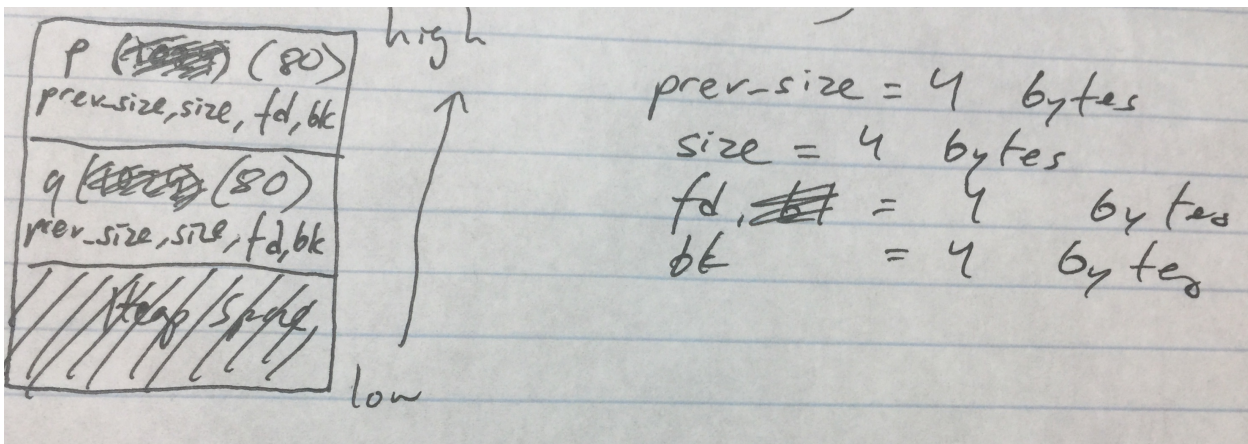 p (80)
prev_size, size, fd, bk
q (80)
prev_size, size, fd, bk
Heap Space
high
low
prev_size = 4 bytes
size = 4 bytes
fd, = 4 bytes
bk = 4 bytes